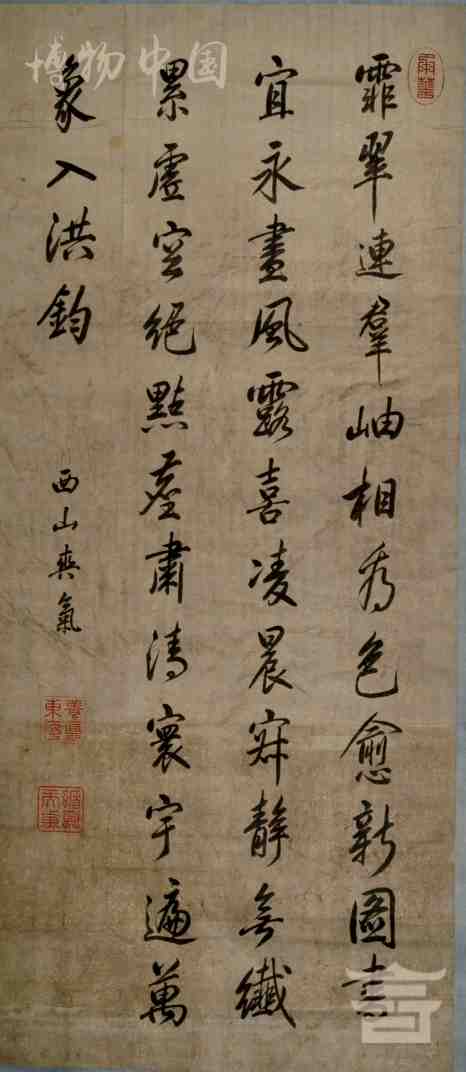 博物中国
霏翠連羣岫相看色愈新圖書
宜永晝風露喜凌晨寂靜無纖
累虛空絕點塵肅清寰宇遍萬
象入洪鈞
西山爽氣